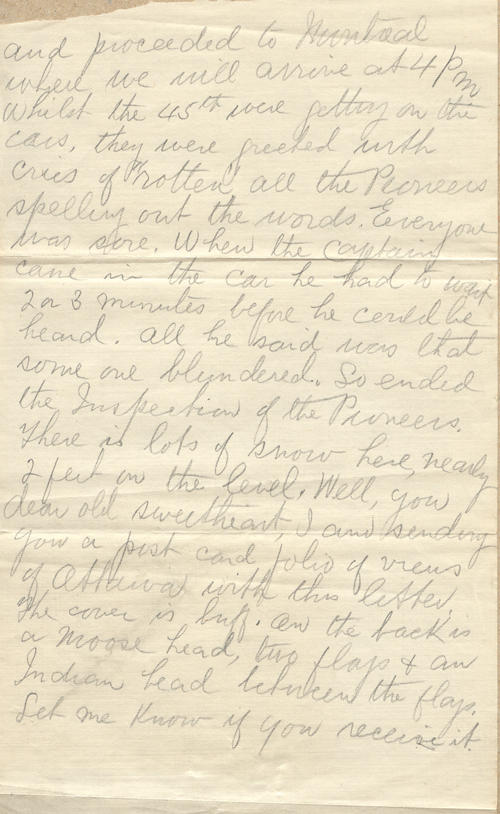 and proceeded to Montreal
where we will arrive at 4 Pm
Whilst the 45th were getting on the
cars, they were greeted with
cries of "rotten", all the Pioneers
spelling out the words. Everyone
was sore. When the captain
came in the car he had to wait
2 or 3 minutes before he could be
heard. All he said was that
some one blundered. So ended
the Inspection of the Pioneers.
There is lots of snow here, nearly
2 feet on the level. Well, you
dear old sweetheart, I am sending
you a post card folio of views
of Ottawa with this letter.
The cover is buff. On the back is
a Moose head, two flags & an
Indian head between the flags.
Let me know if you receive it.